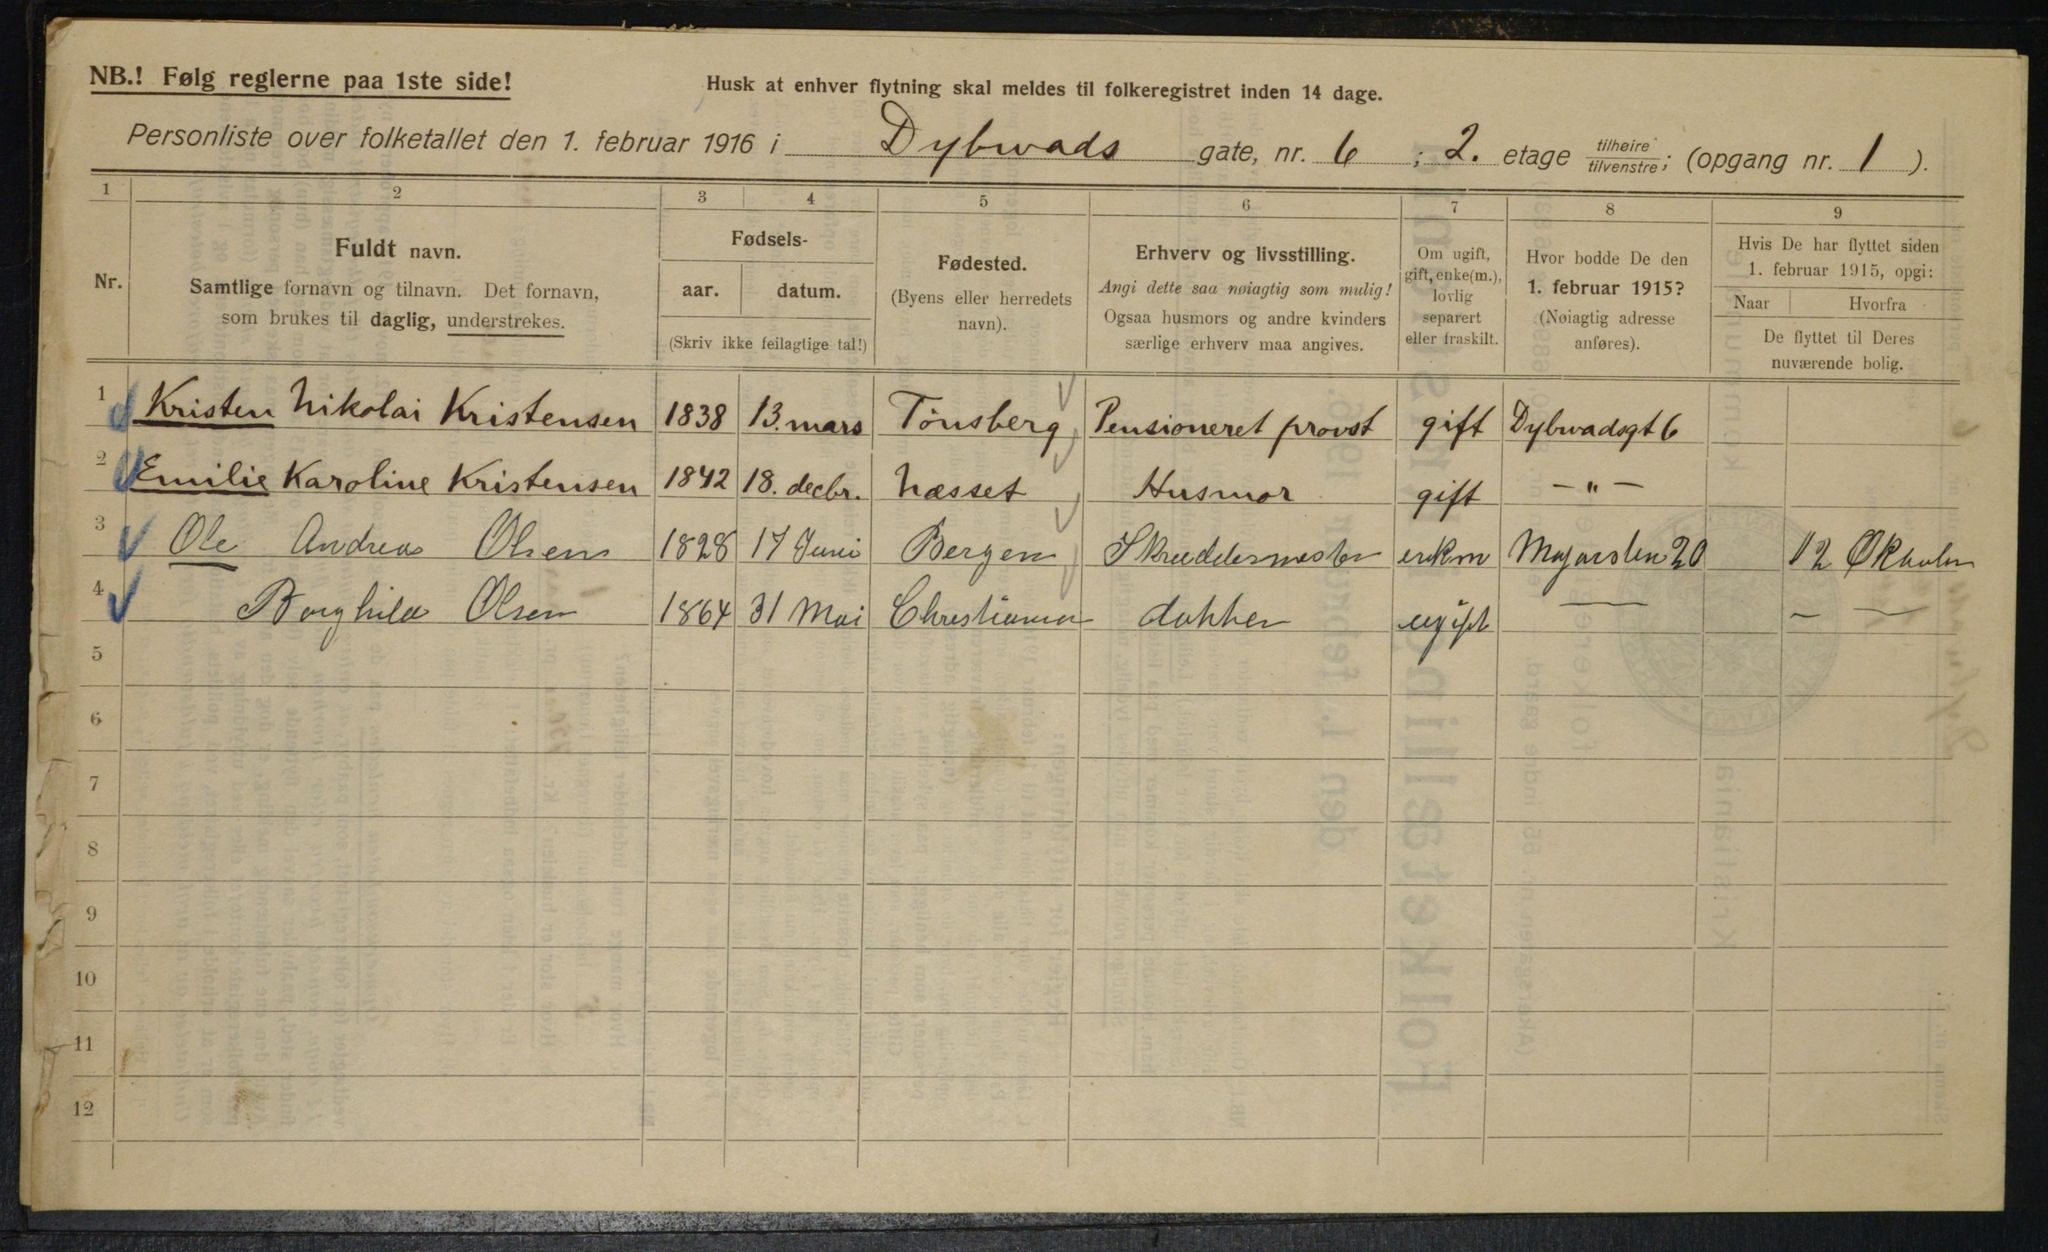 NB.! Følg reglerne paa 1ste side!
Husk at enhver flytning skal meldes til folkeregistret inden 14 dage.
Personliste over folketallet den 1. februar 1916 i Dybwads gate, nr. 6 ; 2. etage tilhøire/tilvenstre; (opgang nr. 1 ).
1 2 3 4 5 6 7 8 9
Nr.
Fuldt navn.
Samtlige fornavn og tilnavn. Det fornavn,
som brukes til daglig, understrekes.
Fødsels-
aar. datum.
(Skriv ikke feilagtige tal!)
Fødested.
(Byens eller herredets
navn).
Erhverv og livsstilling.
Angi dette saa nøiagtig som mulig!
Ogsaa husmors og andre kvinders
særlige erhverv maa angives.
Om ugift,
gift, enke(m.),
lovlig
separert
eller fraskilt.
Hvor bodde De den
1. februar 1915?
(Nøiagtig adresse
anføres).
Hvis De har flyttet siden
1. februar 1915, opgi:
Naar Hvorfra
De flyttet til Deres
nuværende bolig.
1 Kristen Nikolai Kristensen 1838 13. mars Tønsberg Pensioneret provst gift Dybwadsgt 6
2 Emilie Karoline Kristensen 1842 18. decbr. Næsset Husmor gift — " —
3 Ole Andreas Olsen 1828 17 Juni Bergen Skreddermester enkm Majorstен 20 12
4 Borghild Olsen 1864 31 Mai Christiania datter ugift — — —
5
6
7
8
9
10
11
12